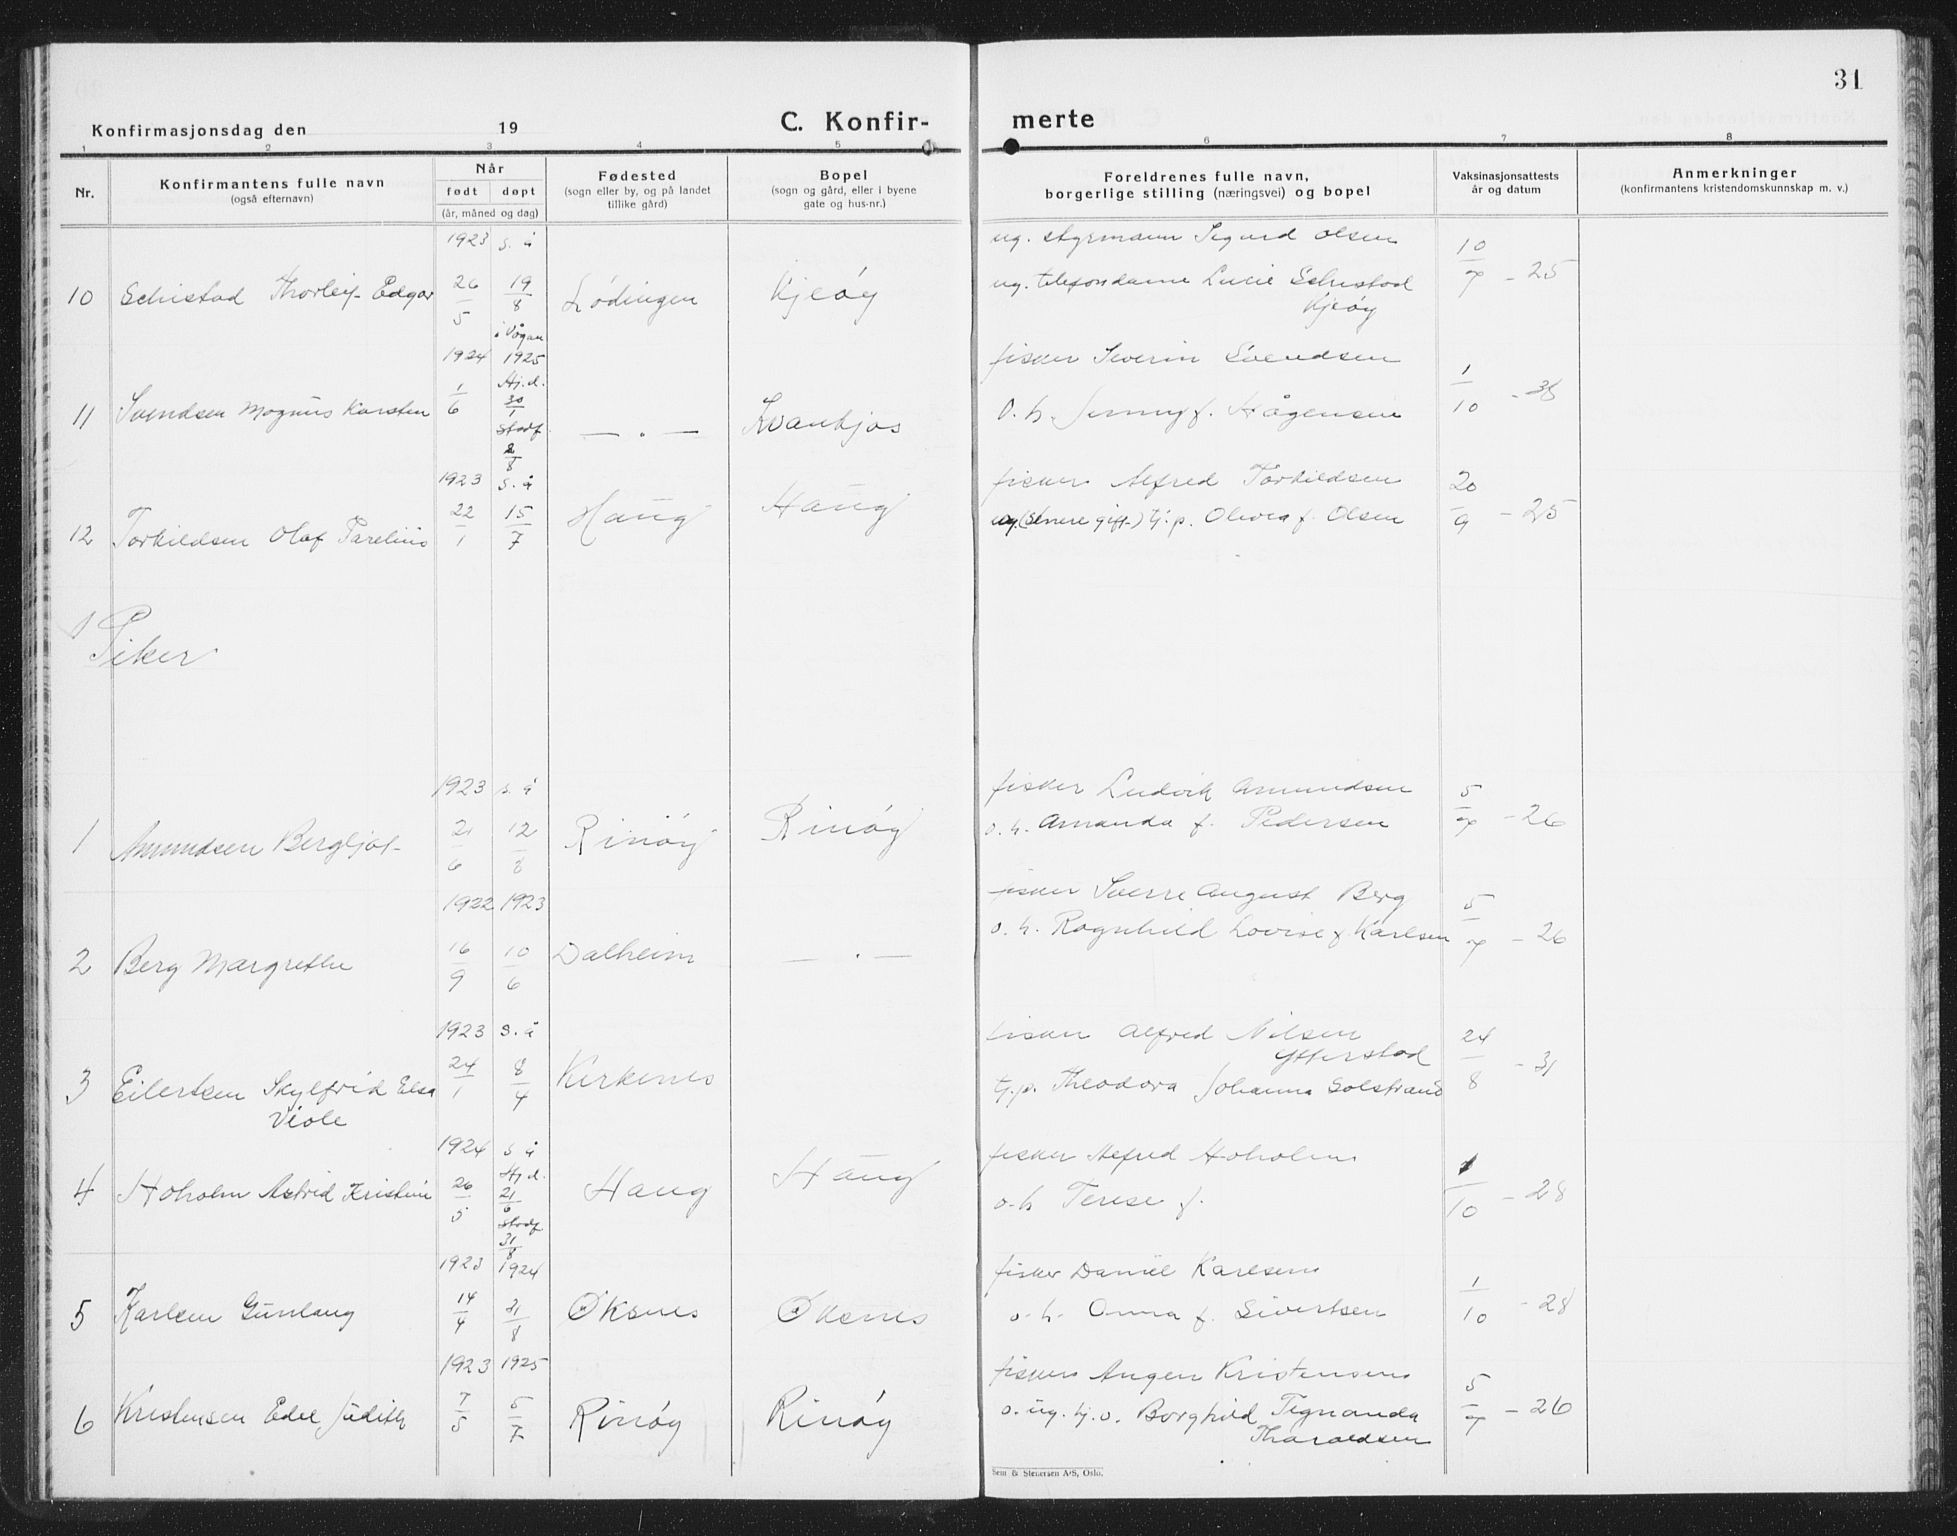 31
Konfirmasjonsdag den 19 C. Konfir- merte
1 2 3 4 5 6 7 8
Nr. Konfirmantens fulle navn (også efternavn) Når født døpt (år, måned og dag) Fødested (sogn eller by, og på landet tillike gård) Bopel (sogn og gård, eller i byene gate og hus-nr.) Foreldrenes fulle navn, borgerlige stilling (næringsvei) og bopel Vaksinasjonsattests år og datum Anmerkninger (konfirmantens kristendomskunnskap m. v.)
1923 s. å ug. styrmann Sigurd Olsen
10 Schistad Thorleif Edgar 26/5 19/8 Lødingen Kjeøy ug. telefondame Lucie Schistad Kjeøy 10/7 - 25
i Vågan
1924 1925 fisker Severin Svendsen
11 Svendsen Magnus Karsten 1/6 Hj.d. 30/1 Stadf 2/8 — . — Kvannkjos o. h. Jenny f. Hågensen 1/10 - 38
1923 s. å fisker Alfred Torkildsen
12 Torkildsen Olaf Parelius 22/1 15/7 Haug Haug ug. (senere gift) tj. p. Olivea f. Olsen 20/9 - 25
Piker
1923 s. å fisker Ludvik Amundsen
1 Amundsen Bergljot 21/6 12/8 Rinøy Rinøy o. h. Amanda f. Pedersen 5/7 - 26
1922 1923 fisker Sverre August Berg
2 Berg Margrethe 16/9 10/6 Dalheim — . — o. h. Ragnhild Lovise f. Karlsen 5/7 - 26
1923 s. å fisker Alfred Nilsen Ytterstad
3 Eilertsen Skylfrid Elsa Viole 24/1 8/4 Kirkenes tj. p. Theodora Johanna Solstrand 24/8 - 31
1924 s å fisker Alfred Hoholm
4 Hoholm Astrid Kristine 26/5 Hj.d. 21/6 Stadf 31/8 Haug Haug o. h Terese f. 1/10 - 28
1923 1924 fisker Daniel Karlsen
5 Karlsen Gunlaug 14/4 31/8 Øksnes Øksnes o. h. Anna f. Sivertsen 1/10 - 28
1923 1925 fisker Angen Kristensen
6 Kristensen Edel Judith 7/5 5/7 Rinøy Rinøy o. ug. tj. p. Borghild Tegnanda Tharaldsen 5/7 - 26
Sem & Stenersen A/S, Oslo.